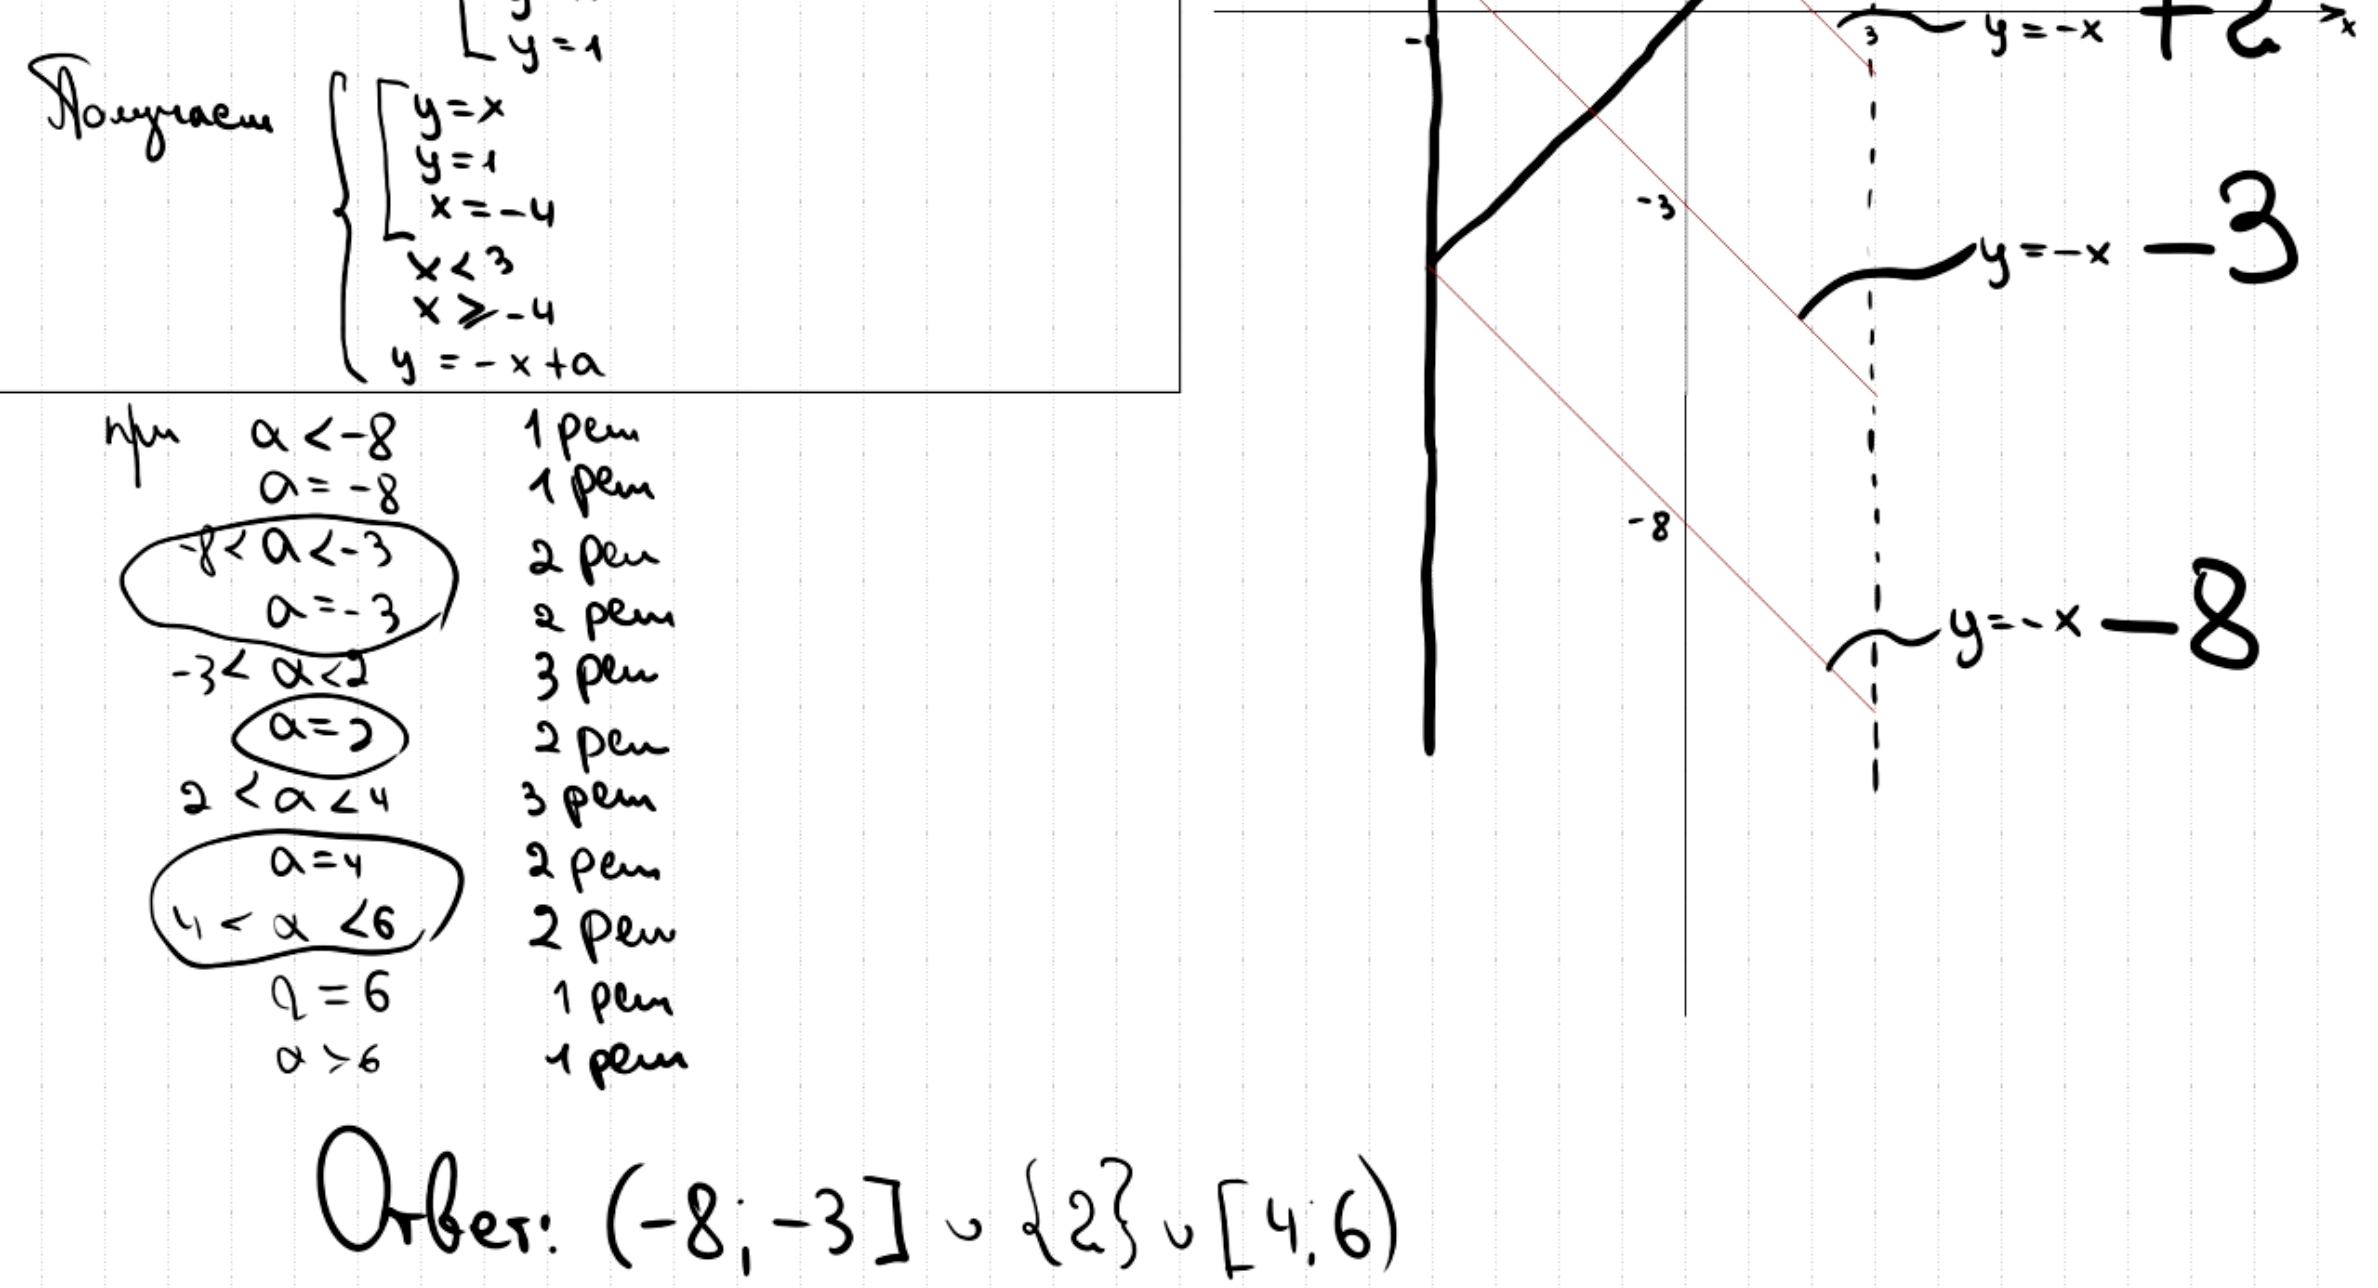 y = 1
Получаем
y = x
y = 1
x = -4
x < 3
x ⩾ -4
y = -x + a
при a < -8 1 реш
a = -8 1 реш
-8 < a < -3 2 реш
a = -3 2 реш
-3 < a < 2 3 реш
a = 2 2 реш
2 < a < 4 3 реш
a = 4 2 реш
4 < a < 6 2 реш
a = 6 1 реш
a > 6 1 реш
Ответ: (-8; -3] ∪ {2} ∪ [4; 6)
3
y = -x + 2
x
-3
y = -x - 3
-8
y = -x - 8